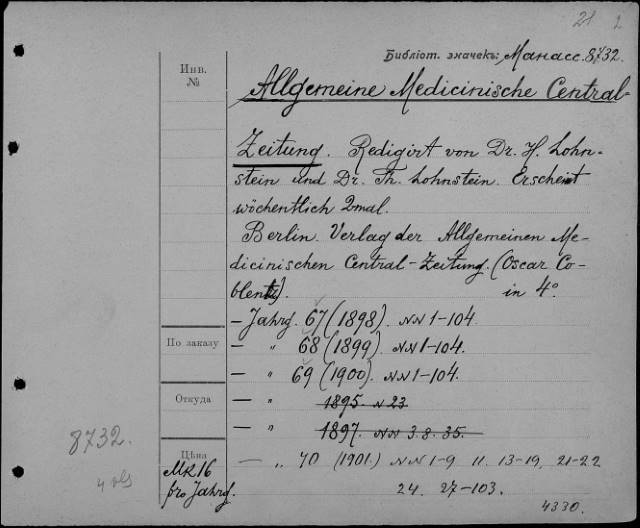 21 2
Библіот. значекъ: Манасс. 8732.
Инв.
№
Allgemeine Medicinische Central-
Zeitung. Redigirt von Dr. H. Lohn-
stein und Dr. Th. Lohnstein. Erscheint
wöchentlich 2mal.
Berlin. Verlag der Allgemeinen Me-
dicinischen Central-Zeitung. (Oscar Co-
blentz). in 4°.
— Jahrg. 67 (1898). NN 1-104.
По заказу
— " 68 (1899). NN 1-104.
— " 69 (1900). NN 1-104.
Откуда
— " 1895. N 23
— " 1897. NN 3. 8. 35.
8732.
4 vls
Цѣна
MK 16
pro Jahrg.
— " 70 (1901.) NN 1-9 11. 13-19, 21-22
24. 27-103.
4330.